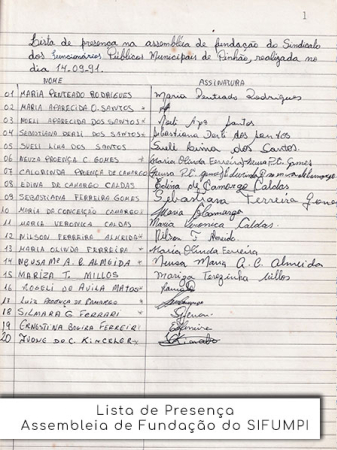 1
Lista de presença na assembleia de fundação do Sindicato
dos Funcionários Públicos Municipais de Pinhão, realizada no
dia 14.09.91.
NOME ASSINATURA
01 MARIA PENTEADO RODRIGUES Maria Penteado Rodrigues
02 MARIA APARECIDA O. SANTOS
03 NOELI APARECIDA DOS SANTOS
04 SEBASTIANA DERLI DOS SANTOS Sebastiana Derli dos Santos
05 SUELI LIMA DOS SANTOS Sueli Lima dos Santos
06 NEUZA PROENÇA C. GOMES Maria Olinda Ferreira
07 PROENÇA DE CAMARGO
08 EDINA DE CAMARGO CALDAS Edina de Camargo Caldas
09 SEBASTIANA FERREIRA GOMES Sebastiana Ferreira Gomes
10 MARIA DA CONCEIÇÃO CAMARGO
11 MARIA VERONICA CALDAS Maria Veronica Caldas
12 NILSON FERREIRA ALMEIDA Nilson F. Almeida
13 MARIA OLINDA FERREIRA Maria Olinda Ferreira
14 NEUSA Mª A. B. ALMEIDA Neusa Maria A. B. Almeida
15 MARIZA T. MILLOS Mariza Terezinha Millos
16 ROSELI DE AVILA MATOS
17 LUIZ PROENÇA DE CAMARGO
18 SILMARA G. FERRARI
19 ERNESTINA FERREIRA
20 IVONE DO C. KINCELER
Lista de Presença
Assembleia de Fundação do SIFUMPI